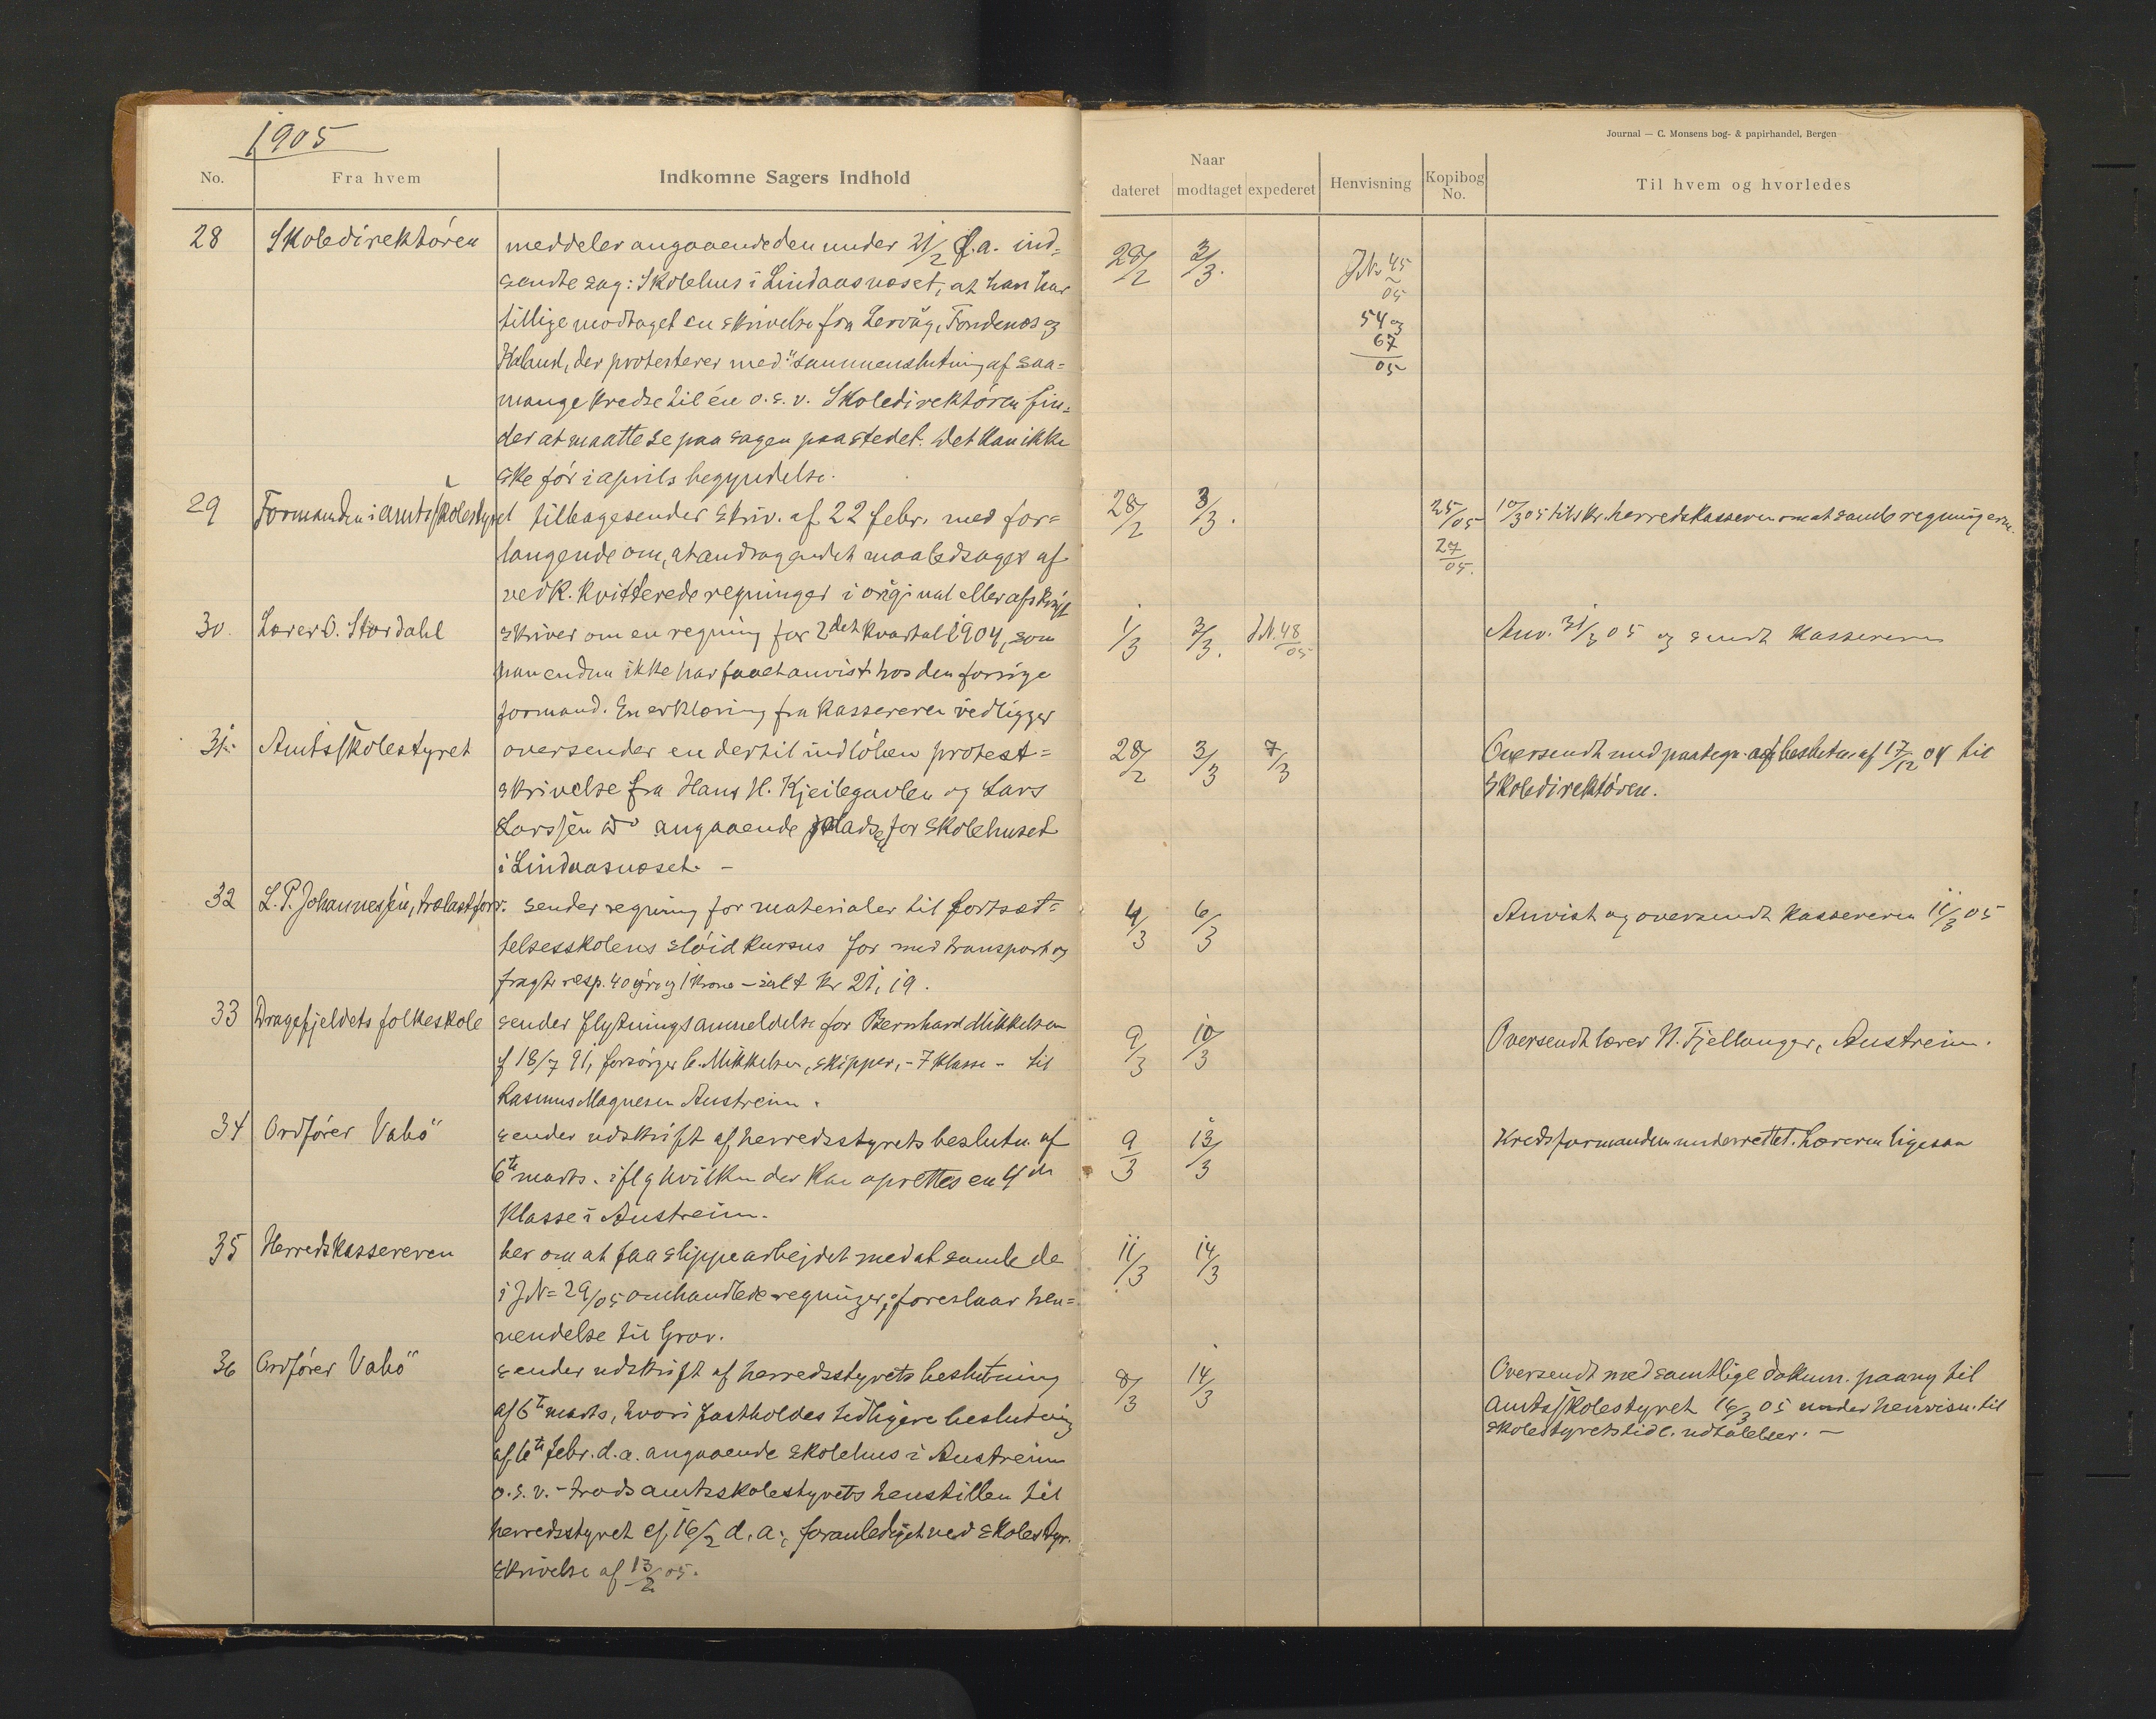 1905
Journal — C. Monsens bog- & papirhandel, Bergen
No. Fra hvem Indkomne Sagers Indhold
Naar
dateret modtaget expederet Henvisning Kopibog No. Til hvem og hvorledes
28 Skoledirektören meddeler angaaende den under 21/2 d.a. ind= 28/2 3/3. J.N. 45
sendte sag: Skolehus i Lindaasnæset, at han har 05
tillige modtaget en skrivelse fra Lervåg, Fondenes og 54 og
Kaland, der protesterer med "sammenslutning af saa= 67
05
mange kredse til én o.s.v. Skoledirektören fin=
der at maatte se paa sagen paa stedet. Det kan ikke
ske för i aprils begyndelse.
29 Formanden i amtsskolestyret tilbagesender skriv. af 22 febr. med for= 28/2 3/3. 25/05 10/3 05 tilskr. herredskasseren om at samle regningerne.
langende om, at andragendet maa ledsages af 27/05.
vedk. kvitterede regninger i original eller afskrift
30. Lærer O. Stordahl skriver om en regning for 2det kvartal 1904, som 1/3 3/3. J.N. 48/05 Anv. 31/3 05 og sendt kassereren
han endnu ikke har faaet anvist hos den forrige
formand. En erklæring fra kassereren vedligger
31. Amtsskolestyret oversender en dertil indlöben protest= 28/2 3/3 7/3 Oversendt med paategn. af beslutn. af 17/12 04 til
skrivelse fra Hans H. Kjeilegavlen og Lars Skoledirektören.
Larssen do angaaende pladsen for skolehuset
i Lindaasnæset. —
32 L. P. Johannessen, trælastforr. sender regning for materialer til fortsæt= 4/3 6/3 Anvist og oversendt kassereren 11/3 05
telsesskolens slöidkursus for med transport og
fragt resp. 40 öre og 1 krone — ialt kr 21,19.
33 Dragefjeldets folkeskole sender flytningsanmeldelse for Bernhard Mikkelsen 9/3 10/3 Oversendt lærer N. Fjellanger, Austreim.
f 18/7 91, forsörger C. Mikkelsen, skipper, - 7 klasse - til
Rasmus Magnesen Austreim.
34 Ordförer Vabö sender udskrift af herredsstyrets beslutn. af 9/3 13/3 Kredsformanden underrettet. Læreren ligesaa
6te marts. iflg hvilken der kan oprettes en 4de
klasse i Austreim.
35 Herredskassereren ber om at faa slippe arbejdet med at samle de 11/3 14/3
i JN= 29/05 omhandlede regninger; foreslaar hen=
vendelse til Grov.
36 Ordförer Vabö sender udskrift af herredsstyrets beslutning 8/3 14/3 Oversendt med samtlige dokum. paany til
af 6te marts, hvori fastholdes tidligere beslutning amtsskolestyret 16/3 05 under henvisn. til
af 6te febr. d.a. angaaende skolehus i Austreim skolestyrets tidl. udtalelser. —
o.s.v. - trods amtsskolestyrets henstillen til
herredsstyret af 16/2 d.a., foranlediget ved skolestyr.
skrivelse af 13/2 05.